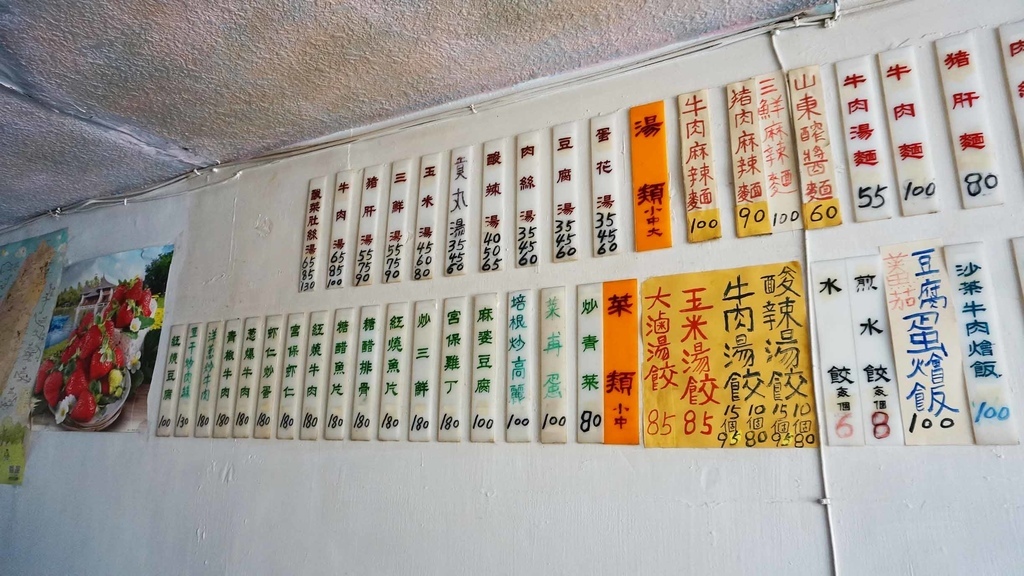 猪肝麵 80
牛肉麵 100
牛肉湯麵 55
山東醡醬麵 60
三鮮麻辣麵 100
猪肉麻辣麵 90
牛肉麻辣麵 100
湯類 小中大
蛋花湯 35 45 60
豆腐湯 35 45 60
肉絲湯 35 45 60
酸辣湯 40 50 65
貢丸湯 35 45 60
玉米湯 45 60 80
三鮮湯 55 75 90
猪肝湯 55 75 90
牛肉湯 65 85 100
酸菜肚絲湯 65 85 130
沙茶牛肉燴飯 100
蕃茄豆腐蛋燴飯 100
煎水餃 每個 8
水餃 每個 6
酸辣湯餃 10個80 15個95
牛肉湯餃 10個80 15個95
玉米湯餃 85
大滷湯餃 85
菜類 小中
炒青菜 80
菜甫蛋 100
培根炒高麗 100
麻婆豆腐 100
宮保雞丁 180
炒三鮮 180
紅燒魚片 180
糖醋排骨 180
糖醋魚片 180
紅燒牛肉 180
宮保蝦仁 180
蝦仁炒蛋 180
葱爆牛肉 180
青椒牛肉 180
洋葱炒牛肉 180
豆干炒肉絲 130
紅燒豆腐 100